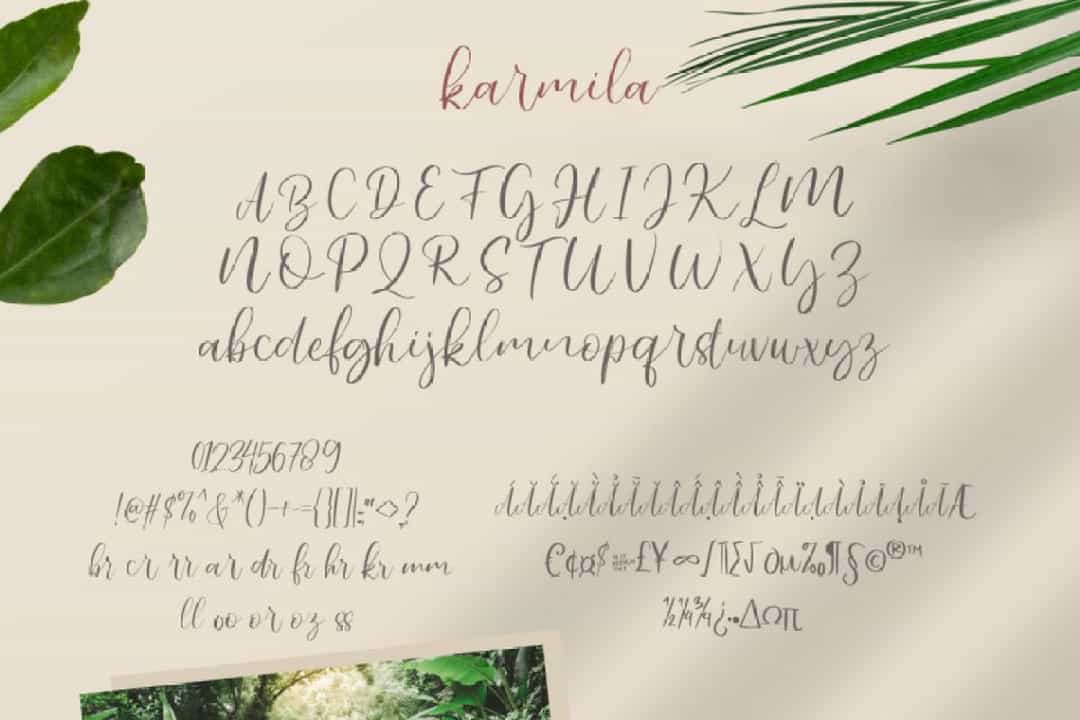 karmila
ABCDEFGHIJKLM
NOPQRSTUVWXYZ
abcdefghijklmnopqrstuvwxyz
0123456789
!@#$%^&*()-+={}[]|:;"'<>,?
br cr rr ar dr fr hr kr mm
ll oo or oz ss
€¢¤$ £¥ ∞∫∏∑√ ∂µ‰¶§©®™
½¼¾¿·•∆Ωπ